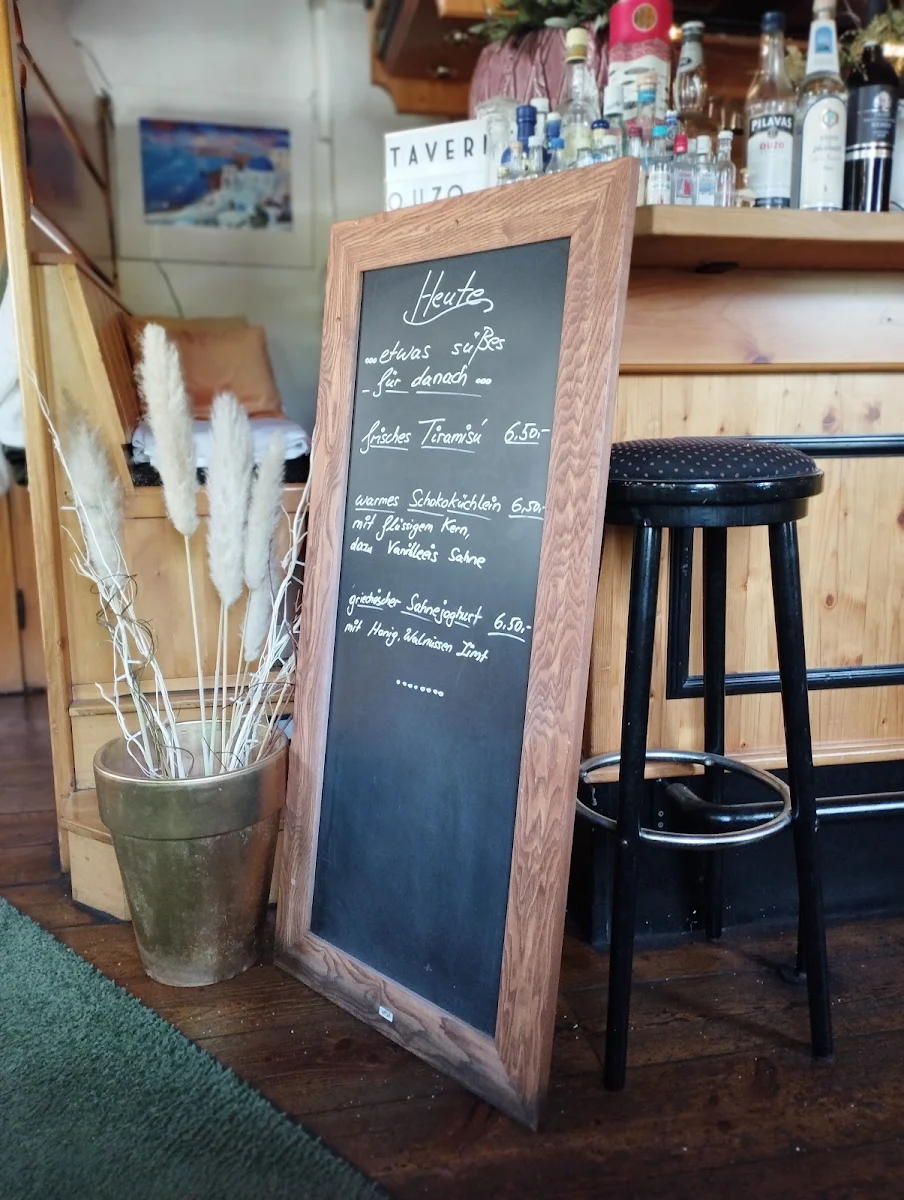 TAVERN
OUZO
PILAVAS
OUZO
Heute
...etwas süßes
- für danach ...
frisches Tiramisú 6.50.-
warmes Schokoküchlein 6.50.-
mit flüssigem Kern,
dazu Vanilleeis Sahne
griechischer Sahnejoghurt 6.50.-
mit Honig, Walnüssen Zimt
........